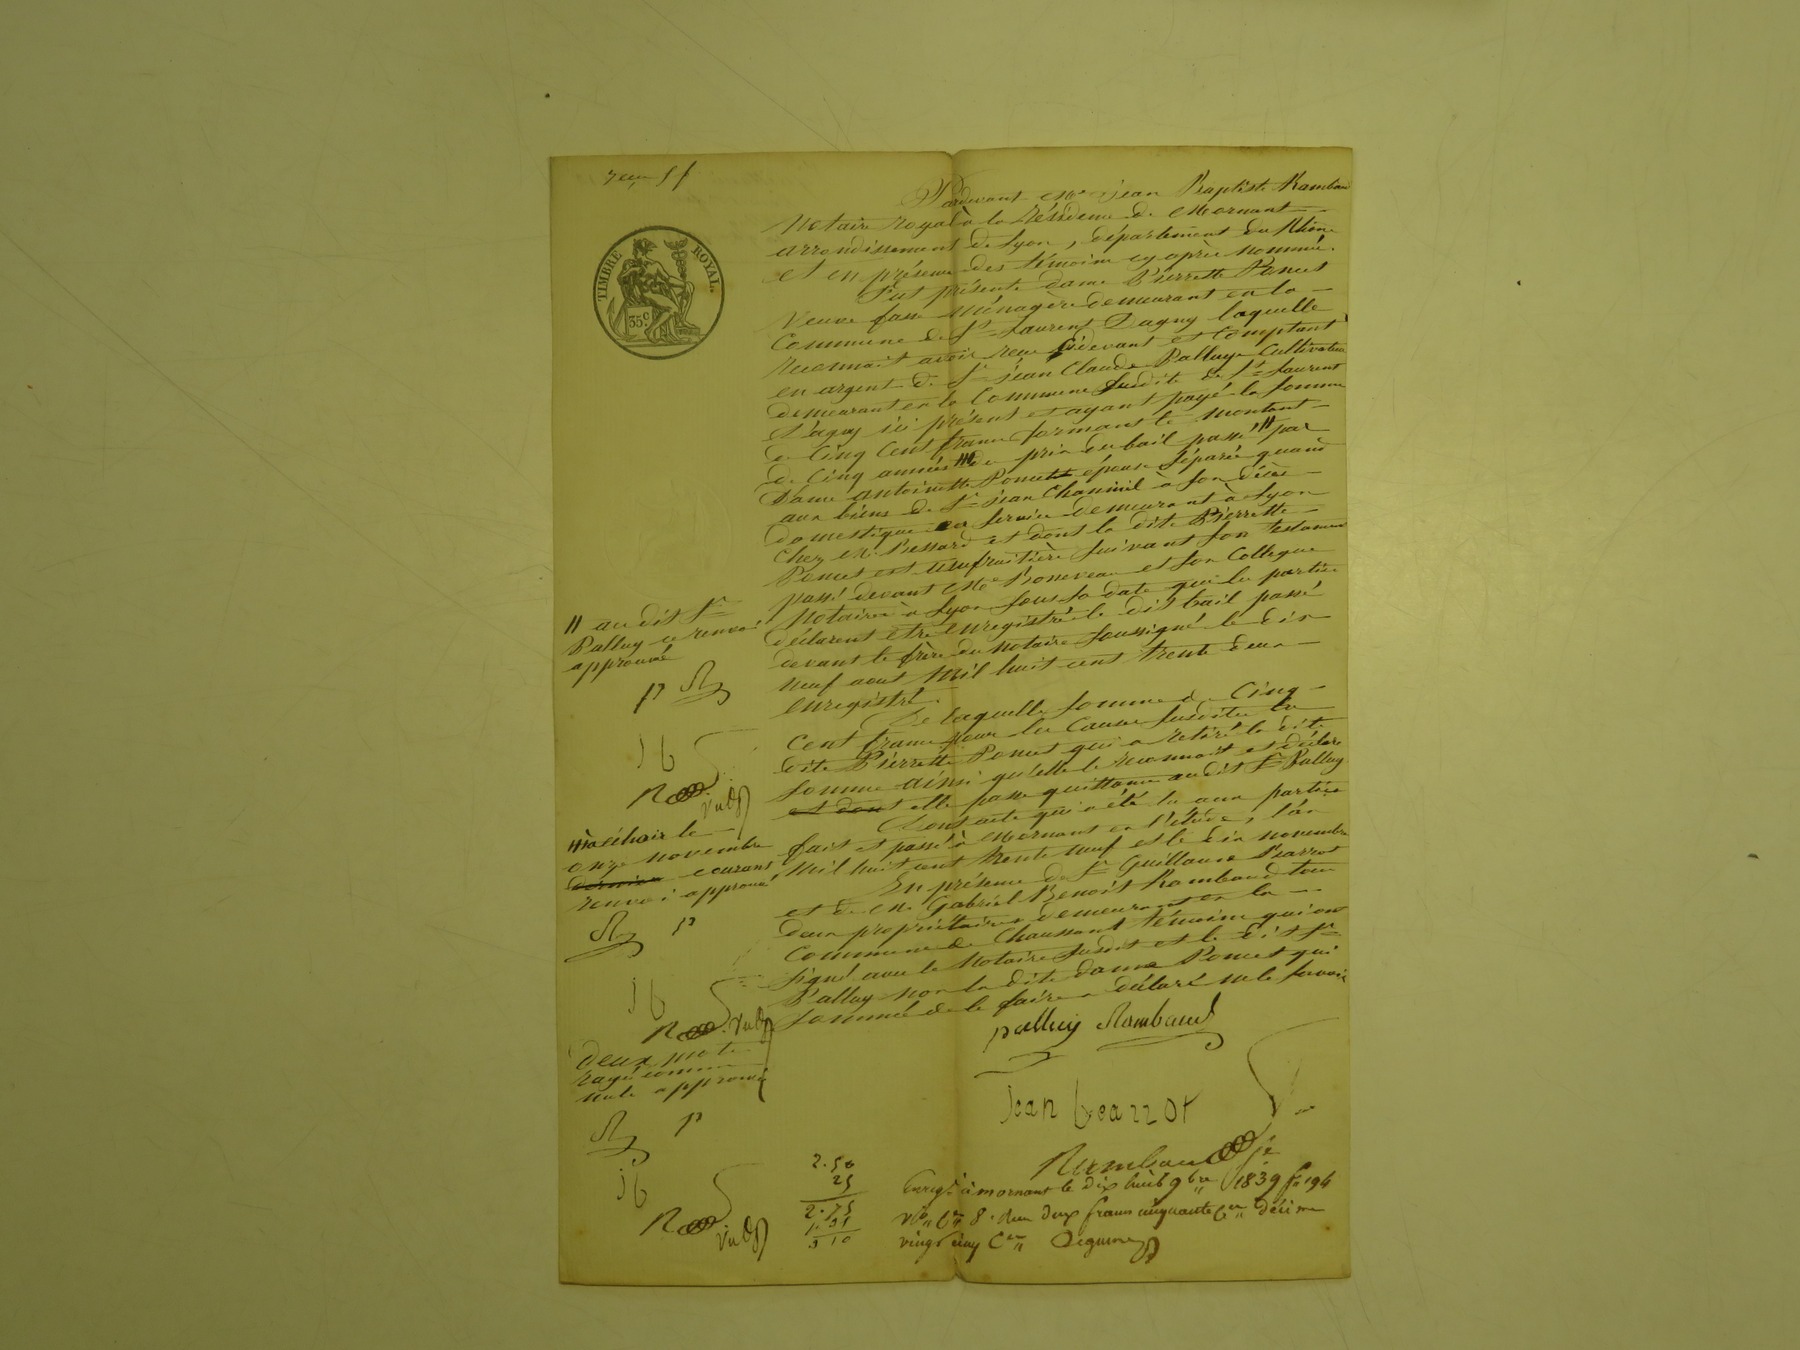 reçu 5 f
TIMBRE ROYAL.
35 c
Pardevant Me jean Baptiste Rambaud
Notaire royal à la résidence de Mornant
arrondissement de Lyon, département du Rhône
et en présence des témoins cy après nommés.
Fut présente dame Pierrette Poncet
veuve ménagère demeurant en la
Commune de St Laurent Dagny laquelle
reconnait avoir reçu cidevant et comptant
en argent de Sr jean Claude Palluy Cultivateur
demeurant en la Commune susdite de St Laurent
Dagny ici présent et ayant payé la somme
de Cinq Cent francs formant le montant
de Cinq années /// du prix du bail passé // par
Dame antoinette Poncet épouse séparée quand
aux biens de Sr jean à son décès
domestique en service demeurant à Lyon
chez Mr et dont la dite Pierrette
Poncet est usufruitière suivant son testament
passé devant Me et son Collegue
Notaires à Lyon sous sa date que les parties
déclarent être enregistré le dit bail passé
devant le frère du notaire soussigné le dix
neuf aout mil huit cent trente deux
enregistré.
De laquelle somme de Cinq
Cent francs pour les Causes susdites la
dite Pierrette Poncet qui a retiré la dite
somme ainsi qu'elle le reconnait et déclare
et dont elle passe quittance au dit Sr Palluy
Dont acte qui a été lu aux parties
fait et passé à Mornant en l'étude, l'an
mil huit cent trente neuf et le dix novembre
En présence de Sr Guillaume Pearrot
et de Mr Gabriel Benoit Rambaud tous
deux propriétaires demeurant en la
Commune de Chaussant témoins qui ont
signé avec le Notaire susdit et le dit Sr
Palluy non la dite dame Poncet qui
sommée de le faire a déclaré ne le savoir
// au dit Sr
Palluy ce renvoi
approuvé
/// à échoir le
onze novembre
dernier courant
renvoi approuvé
deux mots
rayé comme
nuls approuvé
palluy Rambaud
Jean
Rambaud
2.50
25
2.75
3 10
Enregt à mornant le dix huit 9bre 1839 fo 194
vo Ce 8. reçu deux francs cinquante Ces décime
vingt cinq Ces